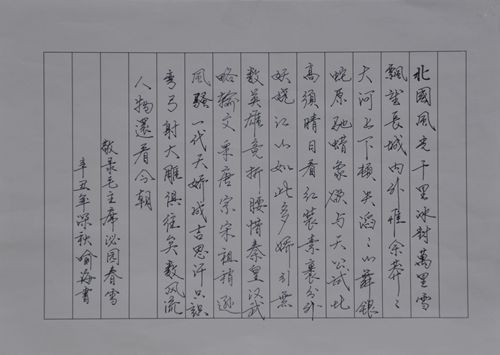 北國風光千里冰封萬里雪
飄望長城內外惟余莽〻
大河上下頓失滔〻山舞銀
蛇原馳蠟象欲与天公試比
高須晴日看红装素裹分外
妖娆江山如此多娇引無
数英雄竞折腰惜秦皇汉武
略输文采唐宗宋祖稍逊
風騷一代天骄成吉思汗只識
弯弓射大雕俱往矣数风流
人物還看今朝
敬录毛主席沁园春雪
辛丑年深秋俞海書